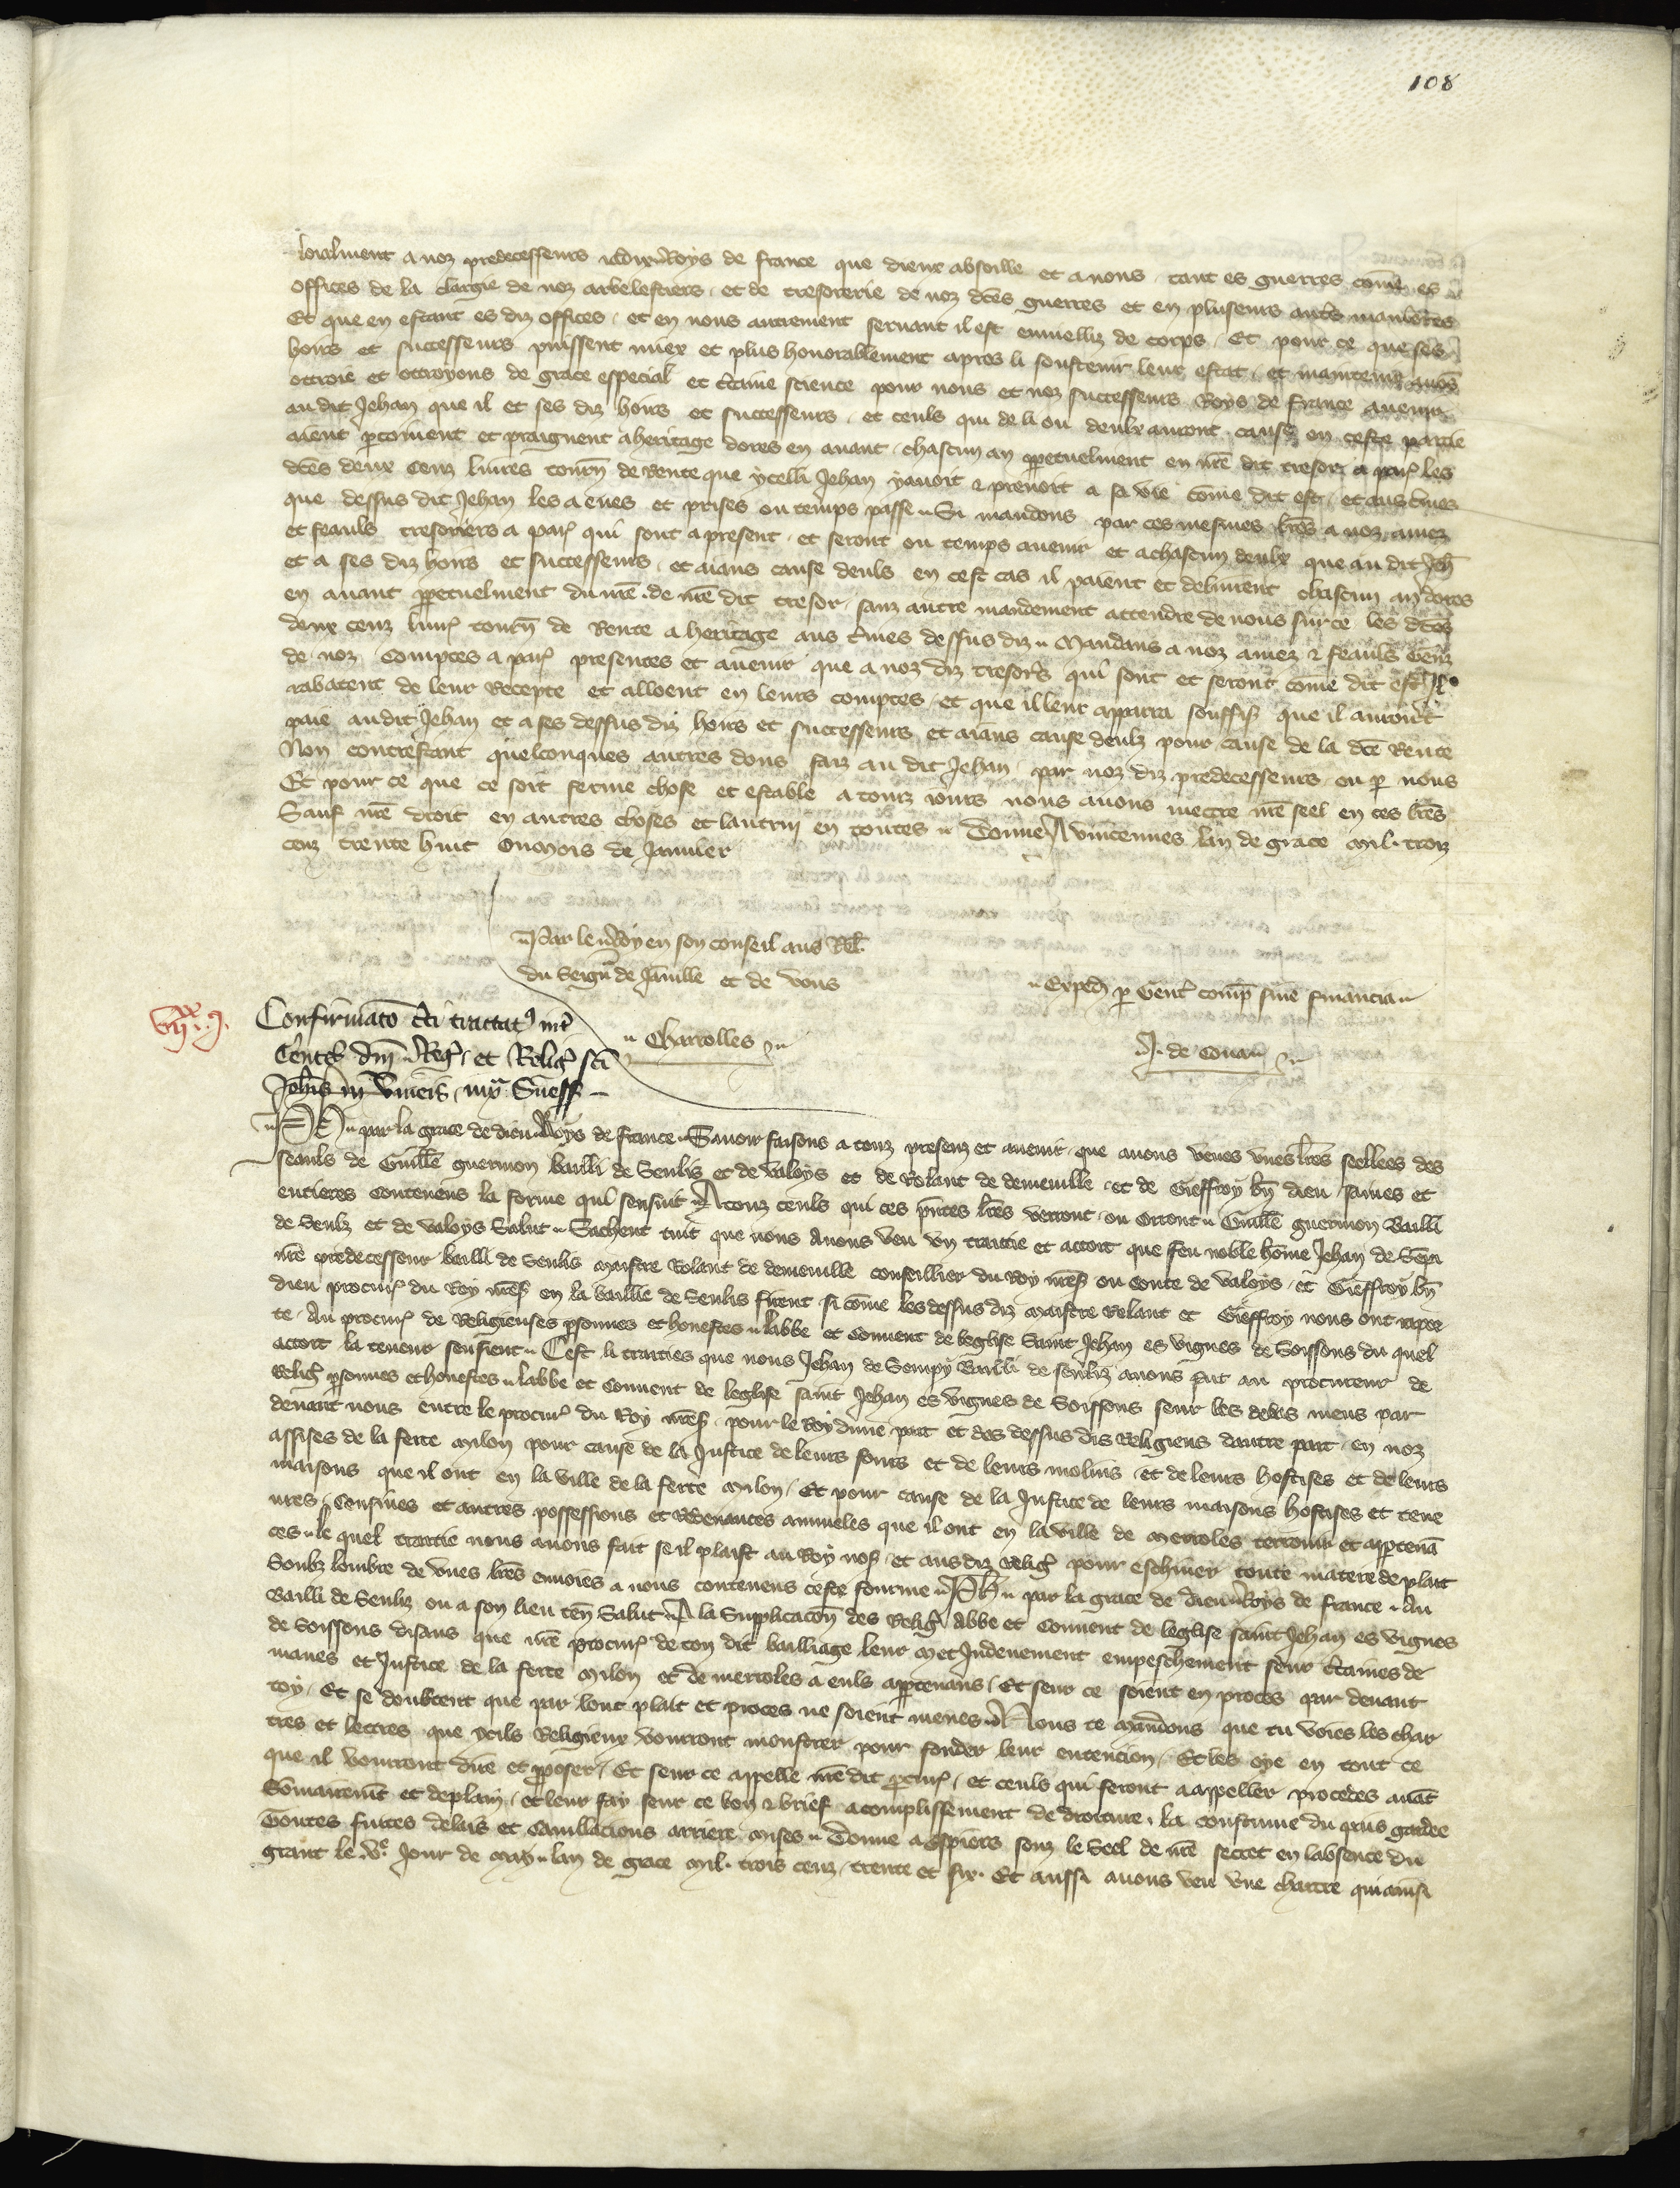 108
loialment a noz predecesseurs iadix Roys de france que dieux absoille et a nous tant es guerres come es
offices de la clargie de noz arbelestiers et de tresorerie de noz dces guerres et en pluseurs autres manieres
Et que en estant es diz offices et en nous autrement seruant il est enuielliz de corps Et pour ce que ses
hoirs et successeurs puissent miex et plus honorablement apres li soustenir leur estat et maintenir auons
ottroie et ottroyons de grace especial et ctaine science pour nous et noz successeurs Roys de france auenir
au dit Jehan que il et ses diz hoirs et successeurs et ceuls qui de li ou deulx auront cause en ceste partie
aient pcoiuent et praignent a heritage dores en auant chascun an ppetuelment en nre dit tresor a par les
dces deux cenz liures tourn de Rente que ycelli Jehan y auoit et prenoit a sa vie come dit est et aus tmes
que dessus dit Jehan les a eues et prises ou temps passe Si mandons par ces mesmes lres a noz amez
et feauls tresoriers a par qui sont a present et seront ou temps auenir et a chascun deulx que au dit Jeh
et a ses diz hoirs et successeurs et aians cause deuls en cest cas il paient et deliurent chascun an dores
en auant ppetuelment du nre de nre dit tresor sanz autre mandement attendre de nous sur ce les dces
deux cenz liur tourn de Rente a heritage aus tmes dessus diz Mandans a noz amez et feauls Genz
de noz Comptes a par presentes et auenir que a noz diz tresors qui sont et seront come dit est Il
rabatent de leur Recepte et alloent en leurs comptes et que il leur apparra souffis que il auront
paie au dit Jehan et a ses dessus diz hoirs et successeurs et aians cause deulz pour cause de la dce Rente
Non contrestant quelconques autres dons faiz au dit Jehan par noz diz predecesseurs ou p nous
Et pour ce que ce soit ferme chose et estable a touz iours nous auons mettre nre seel en ces lres
Sauf nre droit en autres choses et lautruy en toutes Donne A vincennes lan de grace mil trois
cenz trente huit Ou mois de Januier
Par le Roy en son conseil aus Rel
du Seign de Jainille et de vous
Exped p Gent comp sine financia
Charrolles
J. de Cona
vii xx j
Confirmato cti tractat int
Gentes dni Reg et Relig sci
Johis in vineis iux Suess
Ph par la grace de dieu Roys de france Sauoir faisons a touz presenz et auenir que auons veues vnes lres seellees des
seauls de Guille guermon bailli de Senlis et de valoys et de Rolant de demeuille et de Gieffroy bn dieu saines et
entieres Contenens la forme qui sensuit A touz ceuls qui ces pntes lres verront ou orront Guille guermon Bailli
de Senlz et de valoys Salut Sachent tuit que nous Auons veu vn traittie et acort que feu noble home Jehan de Sepi
nre predecesseur bailli de Senlis maistre Rolant de demeuille conseillier du Roy nres ou conte de valoys et Gieffroy bn
dieu procur du Roy nres en la baillie de Senlis firent si come les dessus diz maistre Rolant et Gieffroy nous ont rapor
te Au procur de Religieuses psonnes et honestes labbe et Conuent de leglise Saint Jehan es vignes de Soissons du quel
acort la teneur sensieut Cest li traities que nous Jehan de Sempy Bailli de senliz auons fait au procureur de
Relig psonnes et honestes labbe et Conuent de leglise saint Jehan es vignes de Soissons seur les debes meus par
deuant nous entre le procur du Roy nres pour le Roy dune part et des dessus dis Religieus dautre part en noz
assises de la ferte milon pour cause de la Justice de leurs fours et de leurs molins et de leurs hostises et de leurs
maisons que il ont en la ville de la ferte milon Et pour cause de la Justice de leurs maisons hostises et tene
ures Consiues et autres possessions et Redeuances annueles que il ont en la ville de merroles terroir et apptena
ces le quel traittie nous auons fait se il plaist au Roy nos et aus diz relig pour eschiuer toute matere de plait
Soubz lombre de vnes lres enuoies a nous contenens ceste fourme Ph par la grace de dieu Roys de france Au
Bailli de Senliz ou a son lieu ten Salut A la Supplicacon des Relig Abbe et Conuent de leglise saint Jehan es vignes
de Soissons disans que nre procur de ton dit bailliage leur met Indeuement empeschement seur ctaines de
maues et Justice de la ferte milon et de merroles a euls apptenans Et seur ce soient en proces par deuant
toy Et se doubtent que par lonc plait et proces ne soient menes Nous te mandons que tu voies les char
tres et lettres que ycils Religieux vourront monstrer pour fonder leur entencion Et les oye en tout ce
que il vourront dire et pposer Et seur ce appelle nre dit pcur et ceuls qui seront a appeller procedes auat
Somairemt et de plain et leur fay seur ce bon et brief acomplissement de droiture la coustume du pais gardee
Toutes fuites delais et Cauillacions arriere mises Donne a Espiers souz le Seel de nre secret en labsence du
grant le ve Jour de may lan de grace mil trois cenz trente et six Et aussi auons veu vne chartre qui ainsi